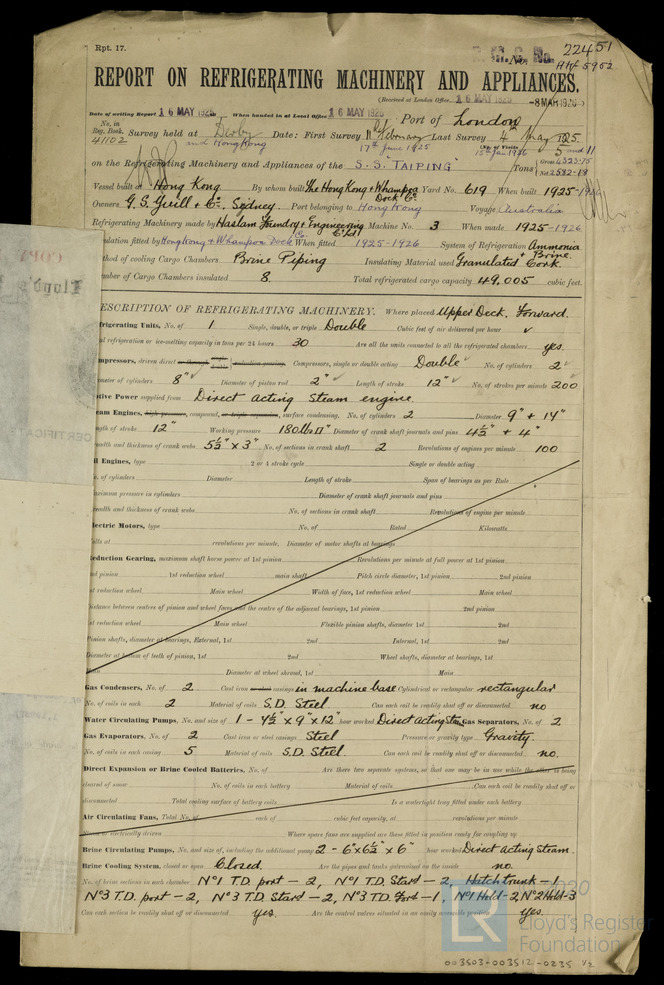 Rpt. 17.
No. 22451
HKf 5952
REPORT ON REFRIGERATING MACHINERY AND APPLIANCES.
(Received at London Office 16 MAY 1925 -8 MAR 1926)
Date of writing Report 16 MAY 1925 When handed in at Local Office 16 MAY 1925 Port of London
No. in Reg. Book. 41102 Survey held at Derby and Hong Kong Date: First Survey February Last Survey 4th May 1925
17th June 1925 15th Jan 1926 (No. of Visits 5 and 11)
on the Refrigerating Machinery and Appliances of the S.S. "TAIPING" Tons Gross 4323.75 Net 2582.18
Vessel built at Hong Kong By whom built The Hong Kong & Whampoa Dock Co. Yard No. 619 When built 1925-1926
Owners G. S. Yuill & Co., Sydney. Port belonging to Hong Kong Voyage Australia
Refrigerating Machinery made by Haslam Foundry & Engineering Co Ltd Machine No. 3 When made 1925-1926
Insulation fitted by Hong Kong & Whampoa Dock Co When fitted 1925-1926 System of Refrigeration Ammonia & Brine
Method of cooling Cargo Chambers Brine Piping Insulating Material used Granulated Cork.
Number of Cargo Chambers insulated 8. Total refrigerated cargo capacity 49,005 cubic feet.
DESCRIPTION OF REFRIGERATING MACHINERY. Where placed Upper Deck, Forward.
Refrigerating Units, No. of 1 Single, double, or triple Double Cubic feet of air delivered per hour
refrigeration or ice-melting capacity in tons per 24 hours 30 Are all the units connected to all the refrigerated chambers yes
Compressors, driven direct Compressors, single or double acting Double No. of cylinders 2
Diameter of cylinders 8" Diameter of piston rod 2" Length of stroke 12" No. of strokes per minute 200
Motive Power supplied from Direct Acting Steam engine
Steam Engines, high pressure, compound, or triple expansion, surface condensing. No. of cylinders 2 Diameter 9" & 14"
Length of stroke 12" Working pressure 180 lbs □" Diameter of crank shaft journals and pins 4½" & 4"
Breadth and thickness of crank webs 5½" x 3" No. of sections in crank shaft 2 Revolutions of engines per minute 100
Oil Engines, type 2 or 4 stroke cycle Single or double acting
No. of cylinders Diameter Length of stroke Span of bearings as per Rule
Maximum pressure in cylinders Diameter of crank shaft journals and pins
Breadth and thickness of crank webs No. of sections in crank shaft Revolutions of engines per minute
Electric Motors, type No. of Rated Kilowatts
Volts at revolutions per minute. Diameter of motor shafts at bearings
Reduction Gearing, maximum shaft horse power at 1st pinion Revolutions per minute at full power at 1st pinion
2nd pinion 1st reduction wheel main shaft Pitch circle diameter, 1st pinion 2nd pinion
1st reduction wheel Main wheel Width of face, 1st reduction wheel Main wheel
Distance between centres of pinion and wheel faces and the centre of the adjacent bearings, 1st pinion 2nd pinion
1st reduction wheel Main wheel Flexible pinion shafts, diameter 1st 2nd
Pinion shafts, diameter at bearings, External, 1st 2nd Internal, 1st 2nd
Diameter at bottom of teeth of pinion, 1st 2nd Wheel shafts, diameter at bearings, 1st
Main Diameter at wheel shroud, 1st Main
Gas Condensers, No. of 2 Cast iron or steel casings in machine base Cylindrical or rectangular rectangular
No. of coils in each 2 Material of coils S.D. Steel. Can each coil be readily shut off or disconnected no
Water Circulating Pumps, No. and size of 1 - 4½" x 9" x 12" how worked Direct Acting Stm Gas Separators, No. of 2
Gas Evaporators, No. of 2 Cast iron or steel casings Steel Pressure or gravity type Gravity.
No. of coils in each casing 5 Material of coils S.D. Steel. Can each coil be readily shut off or disconnected no.
Direct Expansion or Brine Cooled Batteries, No. of Are there two separate systems, so that one may be in use while the other is being
cleared of snow No. of coils in each battery Material of coils Can each coil be readily shut off or
disconnected Total cooling surface of battery coils Is a watertight tray fitted under each battery
Air Circulating Fans, Total No. of each of cubic feet capacity, at revolutions per minute
Steam or electrically driven Where spare fans are supplied are these fitted in position ready for coupling up
Brine Circulating Pumps, No. and size of, including the additional pump 2 - 6" x 6½" x 6" how worked Direct Acting Steam.
Brine Cooling System, closed or open Closed. Are the pipes and tanks galvanised on the inside no.
No. of brine sections in each chamber No 1 T.D. port - 2, No 1 T.D. Stard - 2, Hatch trunk - 1
No 3 T.D. port - 2, No 3 T.D. Stard - 2, No 3 T.D. - 1, No 1 Hold - 2, No 2 Hold - 3
Can each section be readily shut off or disconnected yes. Are the control valves situated in an easily accessible position yes.
© 2020
LR
Lloyd's Register
Foundation
003503-003512-0235 1/2
COPY
Lloyd's
CERTIFICA